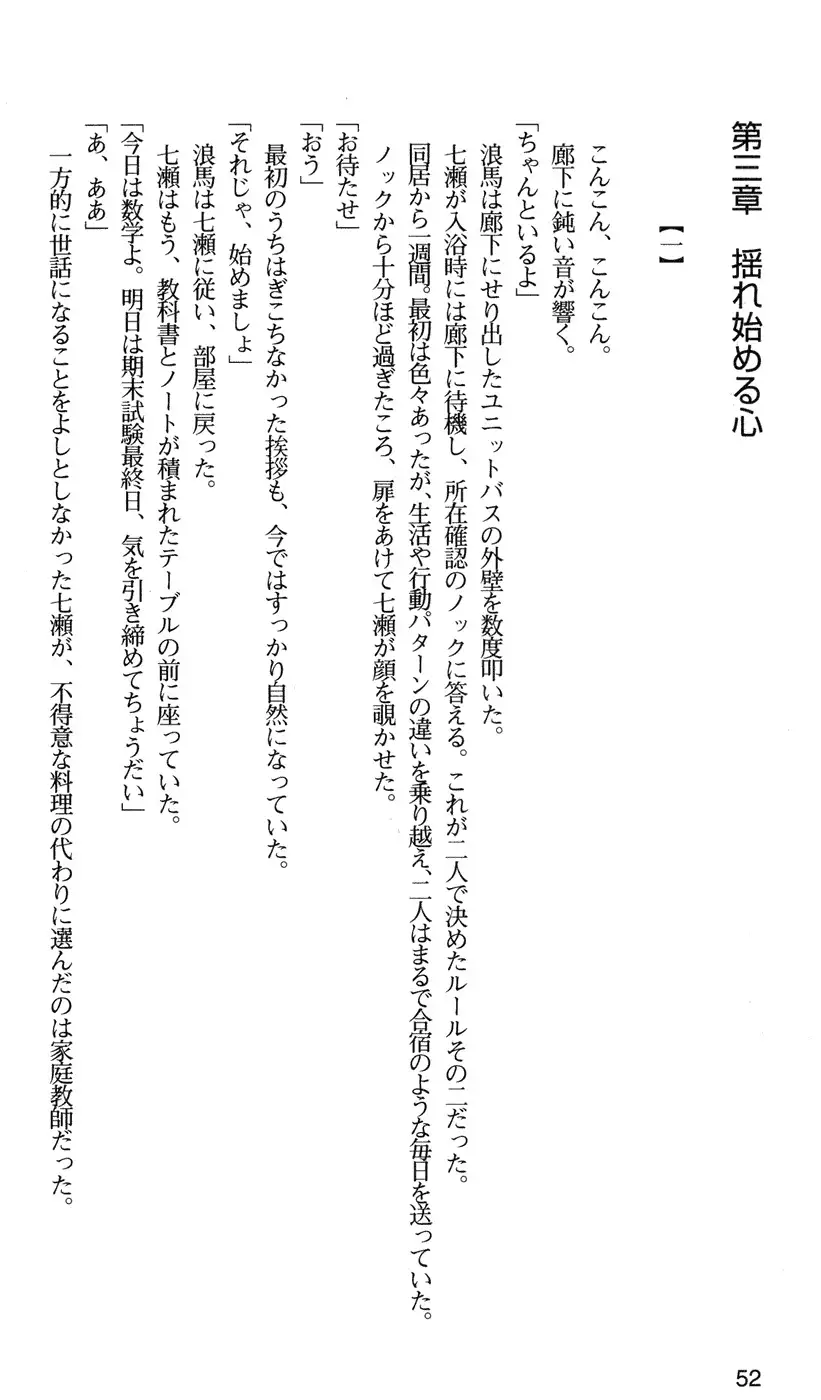 第三章　揺れ始める心
【一】
こんこん、こんこん。
廊下に鈍い音が響く。
「ちゃんといるよ」
浪馬は廊下にせり出したユニットバスの外壁を数度叩いた。
七瀬が入浴時には廊下に待機し、所在確認のノックに答える。これが二人で決めたルールその二だった。
同居から一週間。最初は色々あったが、生活や行動パターンの違いを乗り越え、二人はまるで合宿のような毎日を送っていた。
ノックから十分ほど過ぎたころ、扉をあけて七瀬が顔を覗かせた。
「お待たせ」
「おう」
最初のうちはぎこちなかった挨拶も、今ではすっかり自然になっていた。
「それじゃ、始めましょ」
浪馬は七瀬に従い、部屋に戻った。
七瀬はもう、教科書とノートが積まれたテーブルの前に座っていた。
「今日は数学よ。明日は期末試験最終日、気を引き締めてちょうだい」
「あ、ああ」
一方的に世話になることをよしとしなかった七瀬が、不得意な料理の代わりに選んだのは家庭教師だった。
52